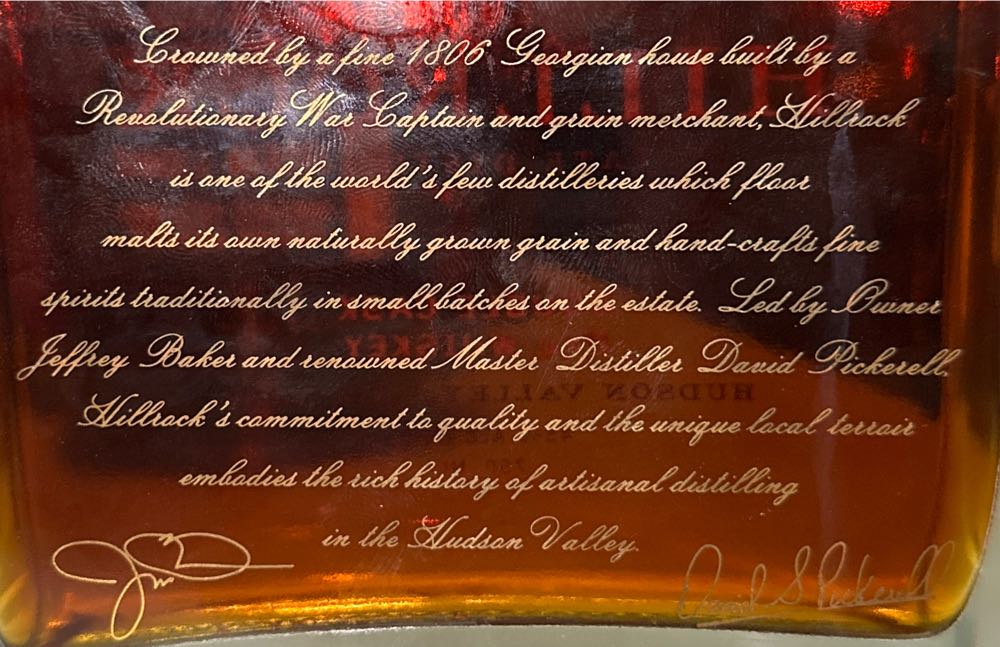 Crowned by a fine 1806 Georgian house built by a
Revolutionary War Captain and grain merchant, Hillrock
is one of the world's few distilleries which floor
malts its own naturally grown grain and hand-crafts fine
spirits traditionally in small batches on the estate. Led by Owner
Jeffrey Baker and renowned Master Distiller David Pickerell,
Hillrock's commitment to quality and the unique local terroir
embodies the rich history of artisanal distilling
in the Hudson Valley.
David S Pickerell
HUDSON VALLEY